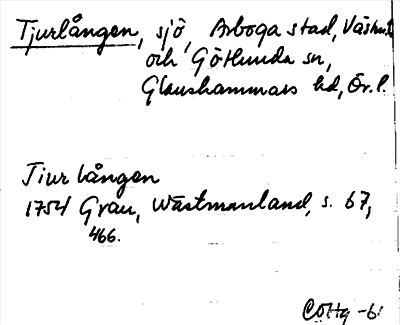 Tjurlången, sjö, Arboga stad, Västm.l.
och Götlunda sn,
Glanshammars hd, Ör.l.
Tiurlången
1754 Grau, Wästmanland, s. 67,
466.